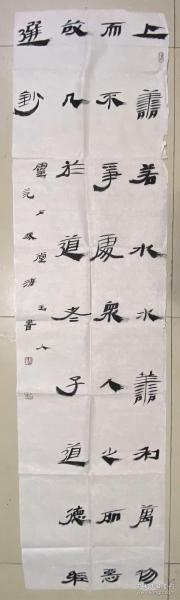 上善若水水善利萬物
而不爭處眾人之所惡
故几於道老子道德經
選鈔